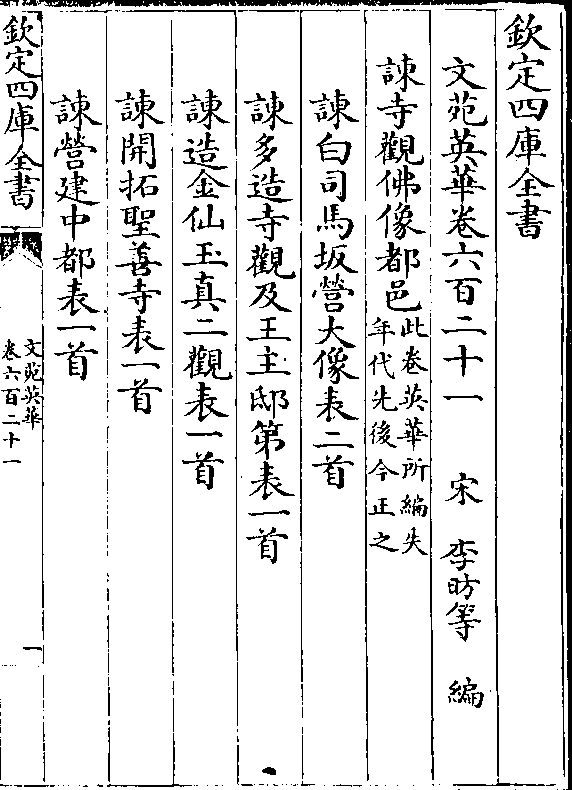 欽定四庫全書
文苑英華卷六百二十一 宋 李昉等 編
諫寺觀佛像都邑此卷英華所編失
年代先後今正之
諫白司馬坂營大像表二首
諫多造寺觀及王主邸第表一首
諫造金仙玉真二觀表一首
諫開拓聖善寺表一首
諫營建中都表一首
欽定四庫全書
文苑英華
卷六百二十一
一